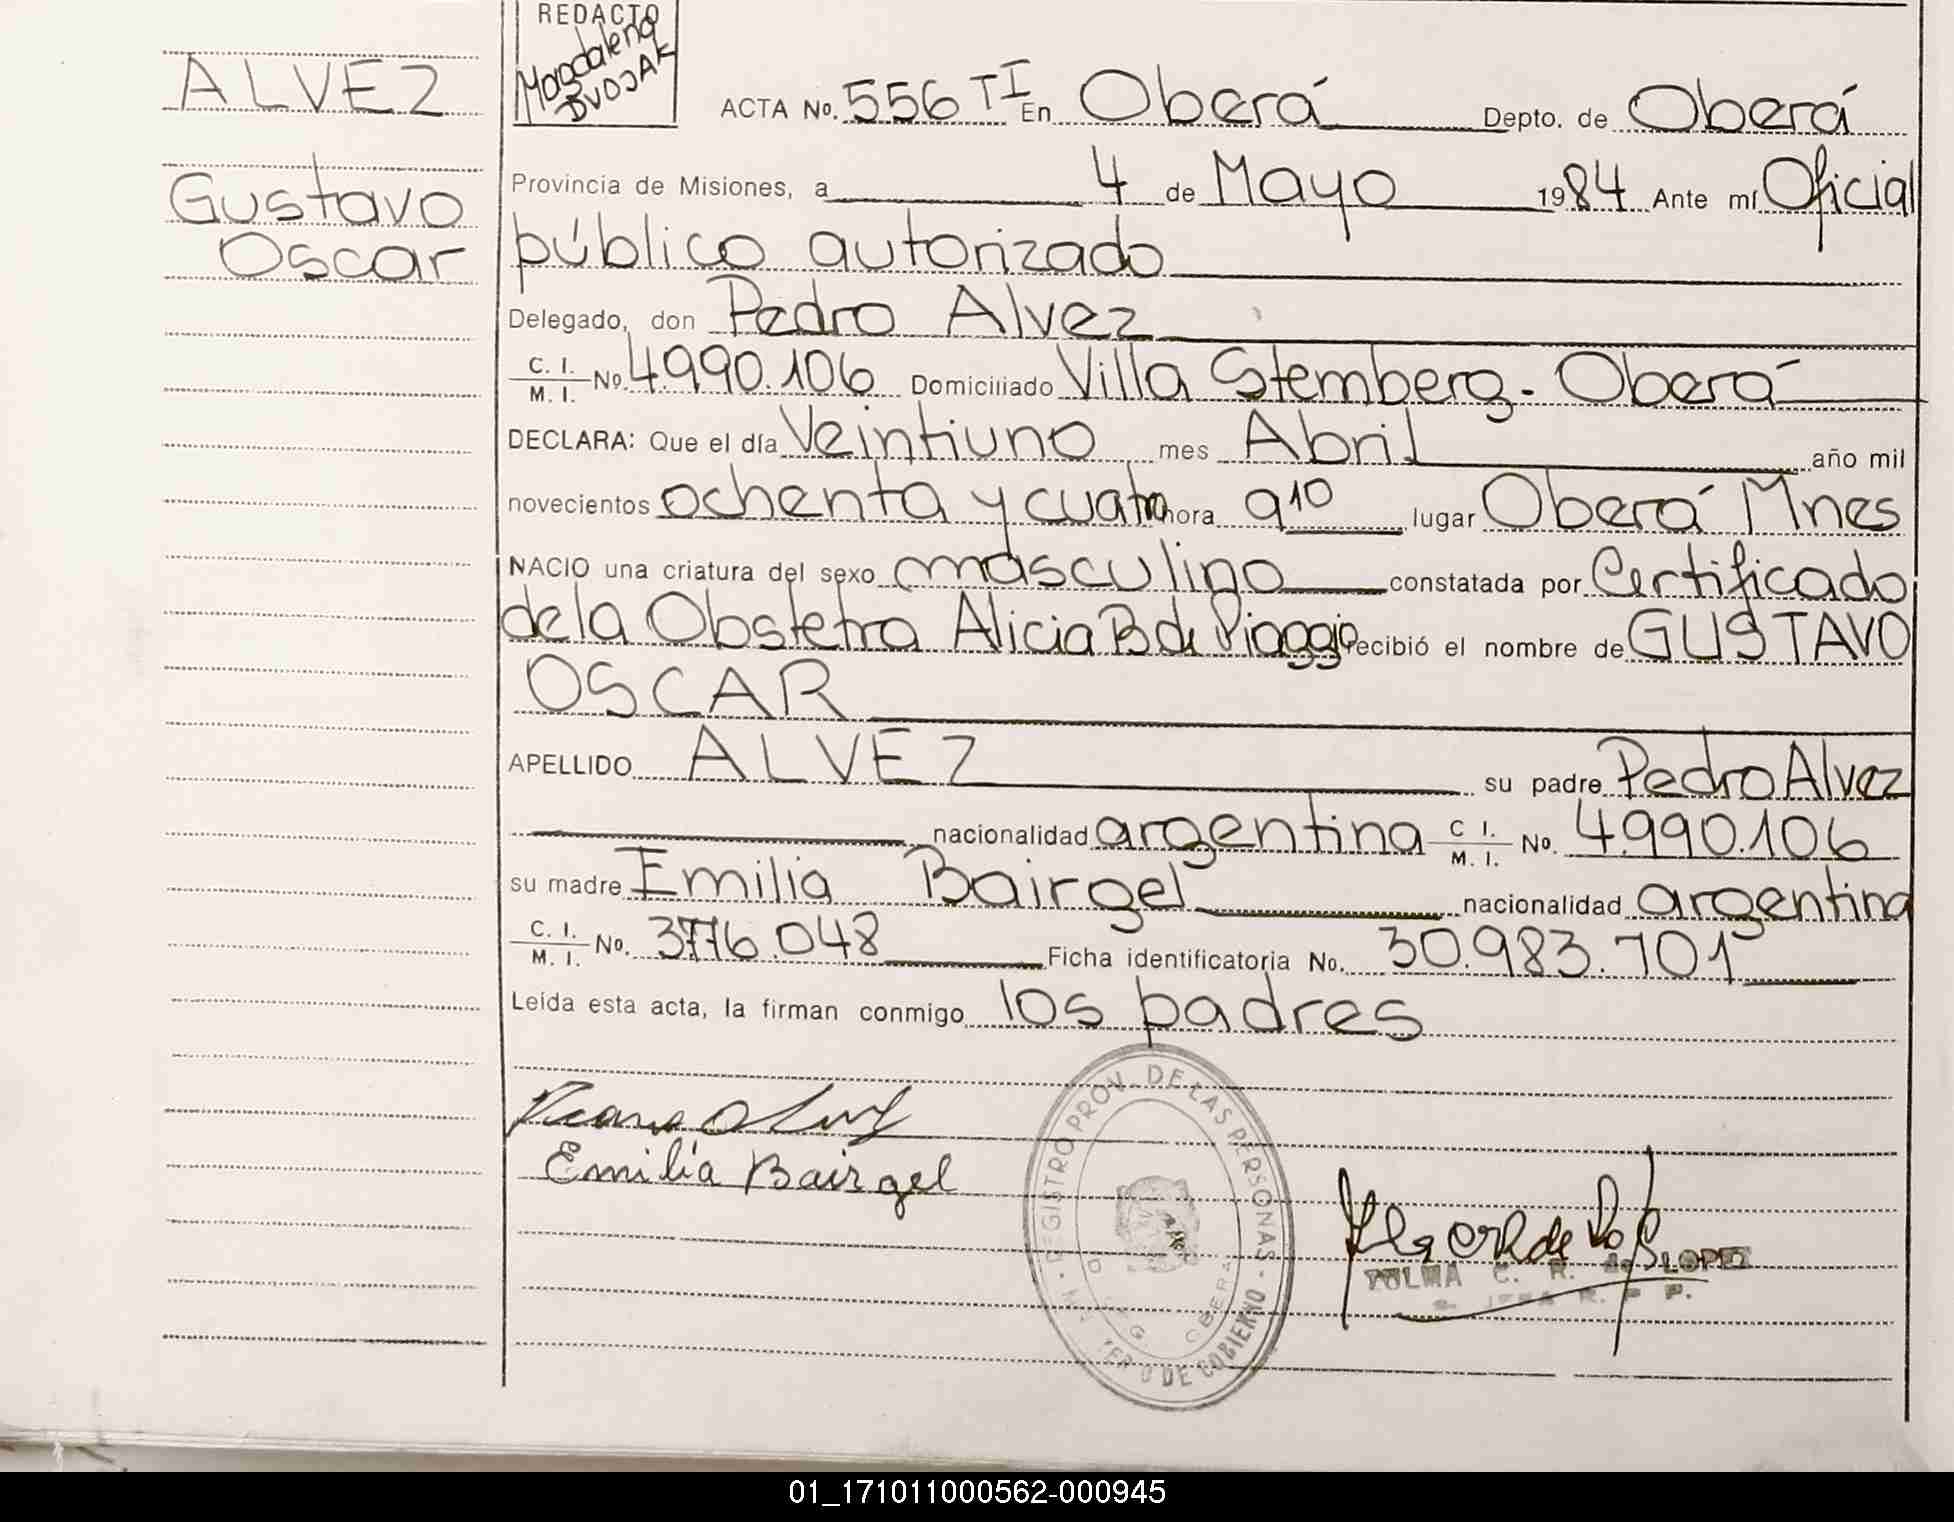 ALVEZ
Gustavo
Oscar
REDACTO
Magdalena
DVOJAK
ACTA No. 556 TI En Oberá Depto. de Oberá
Provincia de Misiones, a 4 de Mayo 1984 Ante mí Oficial
público autorizado
Delegado, don Pedro Alvez
C. I. / M. I. No. 4.990.106 Domiciliado Villa Stemberg - Oberá
DECLARA: Que el día Veintiuno mes Abril año mil
novecientos ochenta y cuatro hora 9 10 lugar Oberá Mnes
NACIO una criatura del sexo masculino constatada por Certificado
de la Obstetra Alicia B de Piaggio recibió el nombre de GUSTAVO
OSCAR
APELLIDO ALVEZ su padre Pedro Alvez
nacionalidad argentina C I. / M. I. No. 4.990.106
su madre Emilia Bairgel nacionalidad argentina
C. I. / M. I. No. 3776.048 Ficha identificatoria No. 30.983.701
Leída esta acta, la firman conmigo los padres
Emilia Bairgel
REGISTRO PROV. DE LAS PERSONAS
DE GOBIERNO
C. R. de LOPEZ
01_171011000562-000945